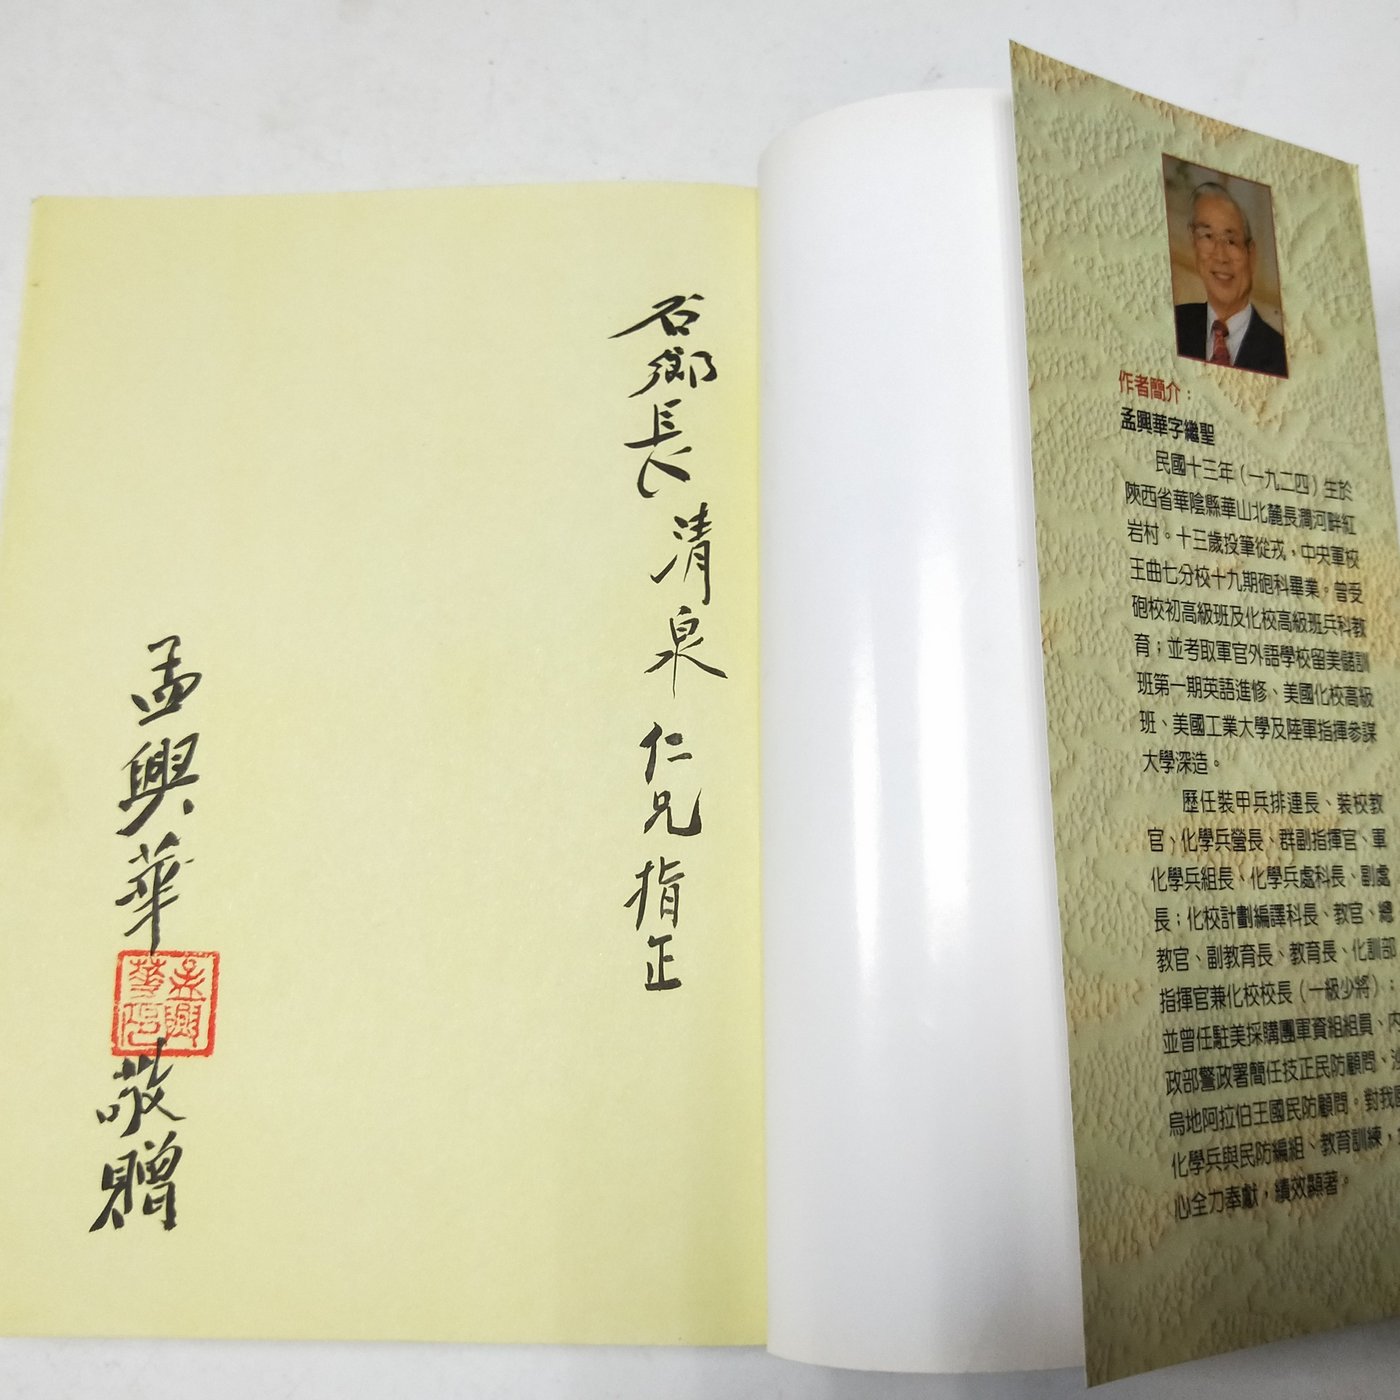 石鄉長清泉仁兄指正
孟興華
孟興
華印
敬贈
作者簡介：
孟興華字繼聖
民國十三年（一九二四）生於
陝西省華陰縣華山北麓長澗河畔紅
岩村。十三歲投筆從戎，中央軍校
王曲七分校十九期砲科畢業。曾受
砲校初高級班及化校高級班兵科教
育；並考取軍官外語學校留美儲訓
班第一期英語進修、美國化校高級
班、美國工業大學及陸軍指揮參謀
大學深造。
歷任裝甲兵排連長、裝校教
官、化學兵營長、群副指揮官、軍
化學兵組長、化學兵處科長、副處
長；化校計劃編譯科長、教官、總
教官、副教育長、教育長、化訓部
指揮官兼化校校長（一級少將）；
並曾任駐美採購團軍資組組員、內
政部警政署簡任技正民防顧問、沙
烏地阿拉伯王國民防顧問。對我國
化學兵與民防編組、教育訓練，
心全力奉獻，績效顯著。